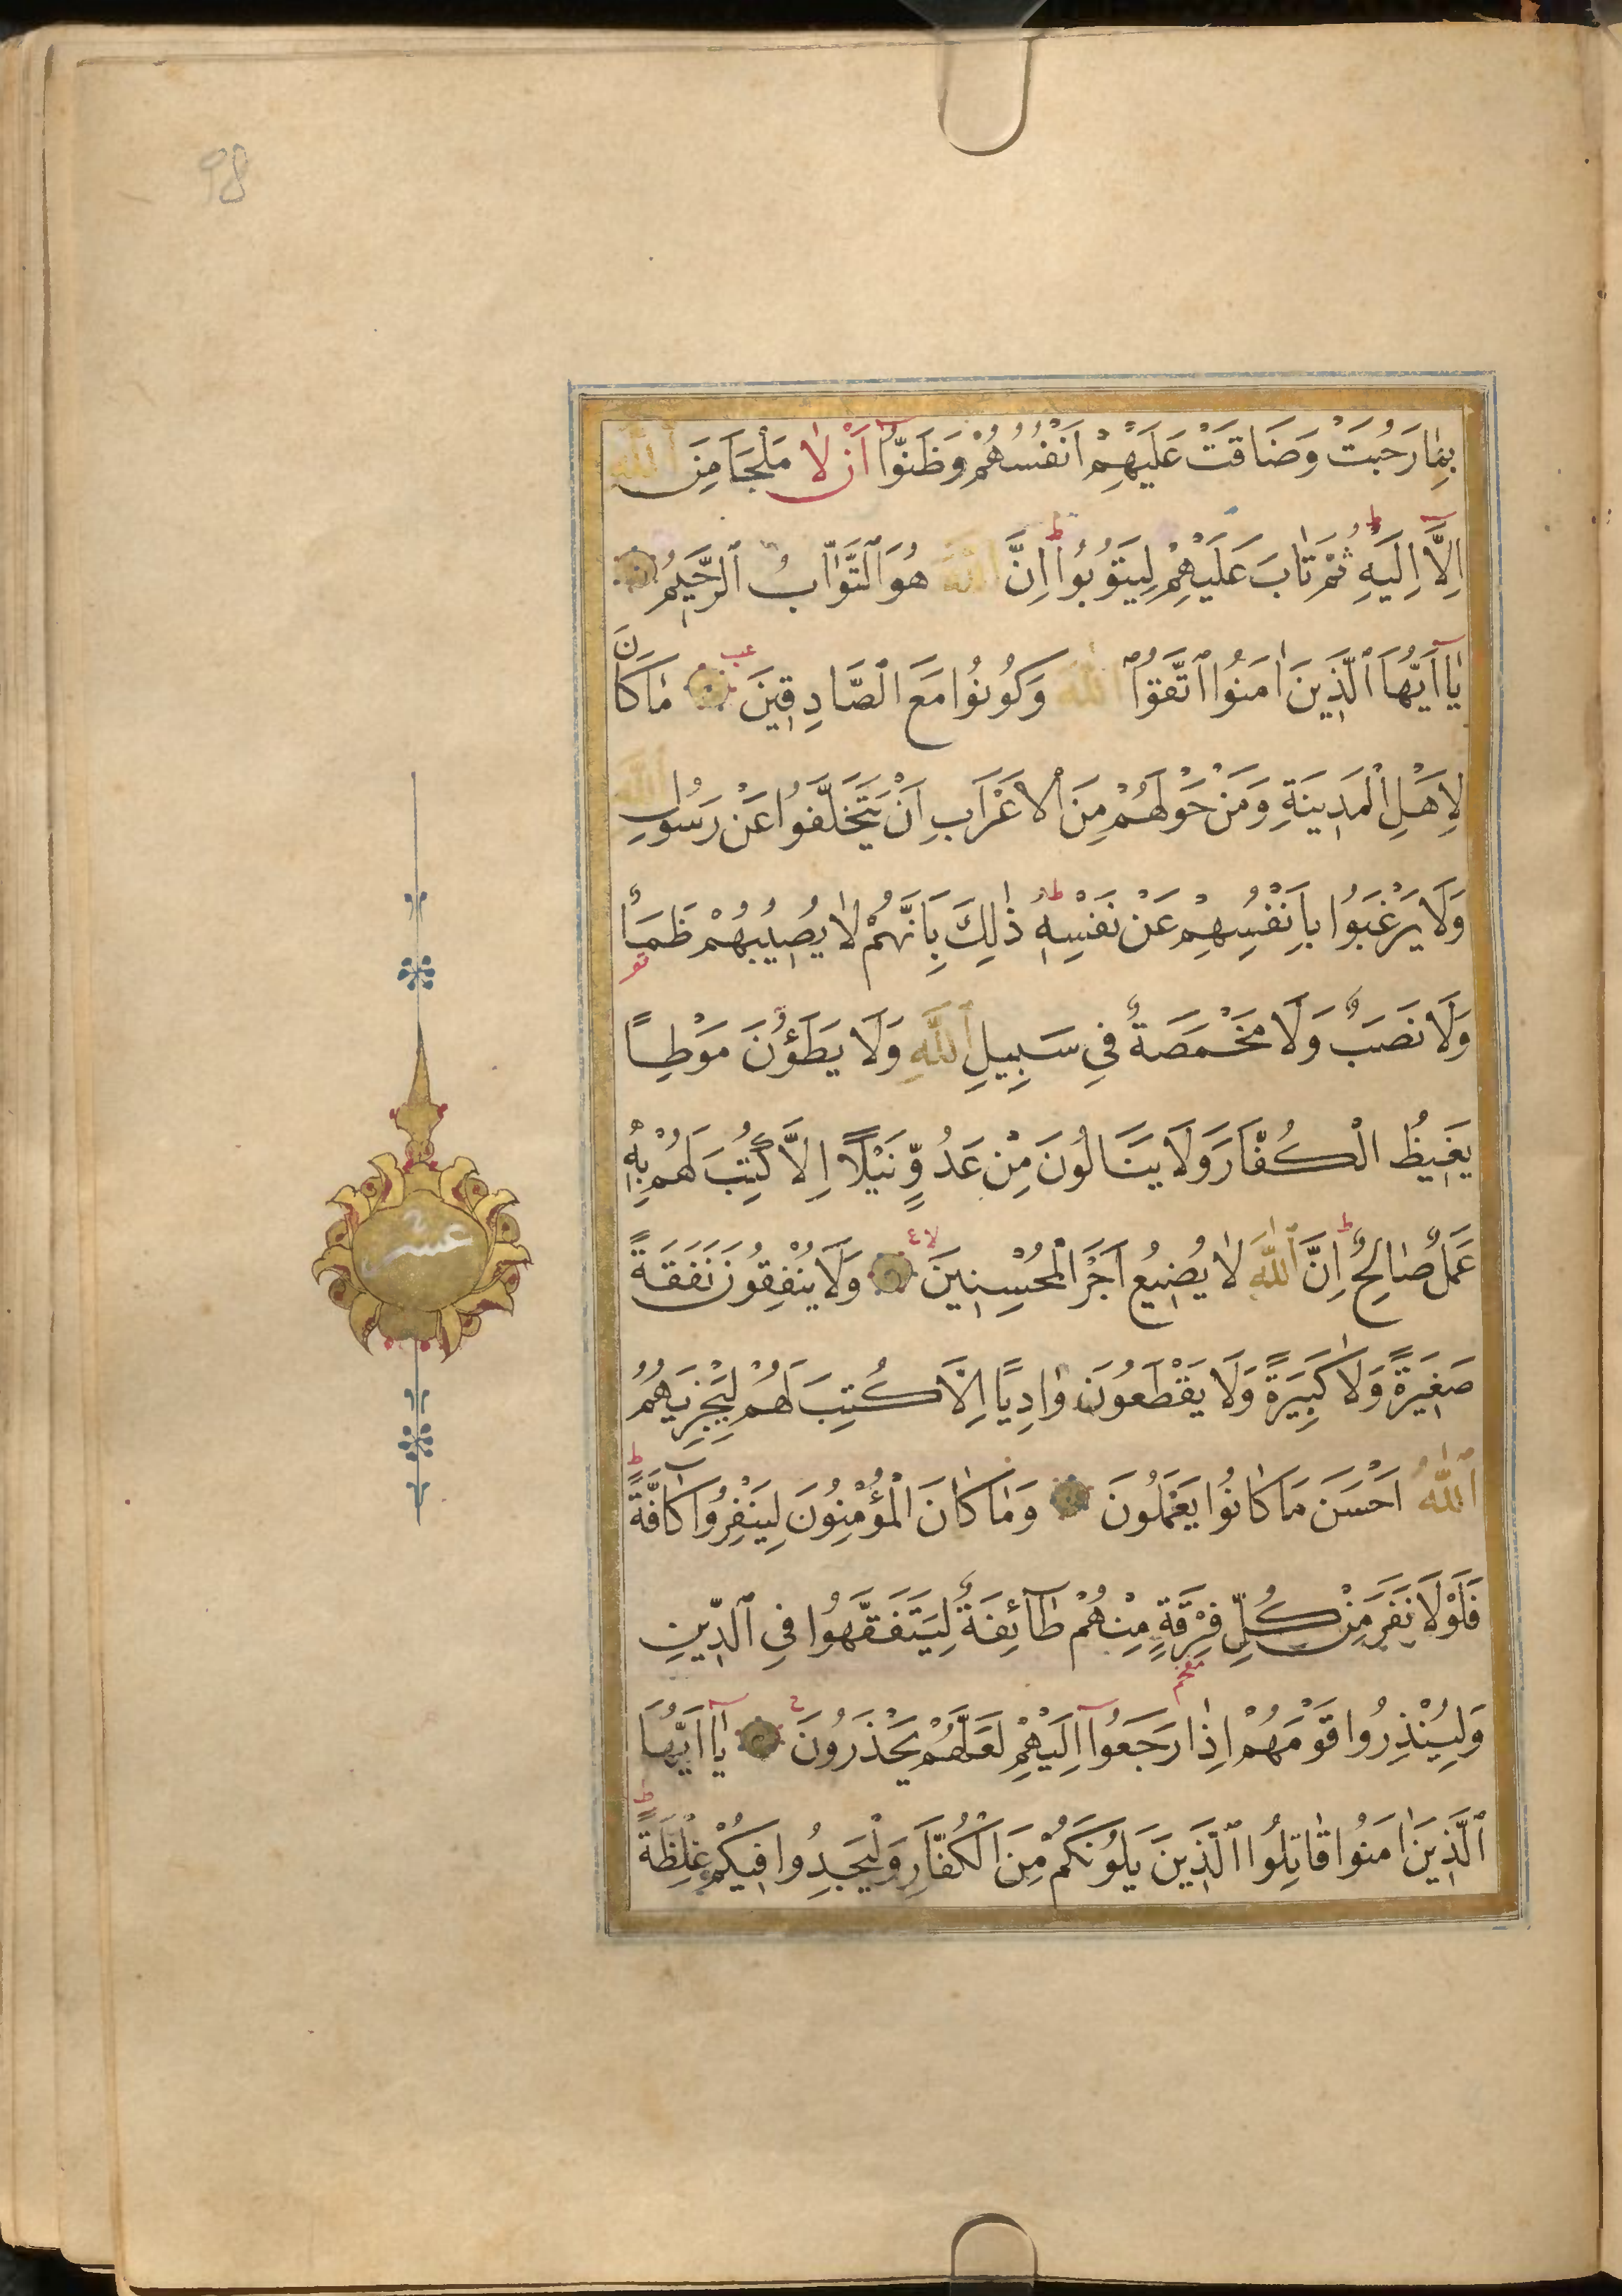 98
بِمَا رَحُبَتْ وَضَاقَتْ عَلَيْهِمْ اَنْفُسُهُمْ وَظَنُّٓوا اَنْ لَا مَلْجَاَ مِنَ ٱللّٰهِ
اِلَّٓا اِلَيْهِ ثُمَّ تَابَ عَلَيْهِمْ لِيَتُوبُوا اِنَّ ٱللّٰهَ هُوَ ٱلتَّوَّابُ ٱلرَّحِيمُ
يَٓا اَيُّهَا ٱلَّذِينَ اٰمَنُوا ٱتَّقُوا ٱللّٰهَ وَكُونُوا مَعَ الصَّادِقِينَ مَا كَانَ
لِاَهْلِ الْمَدِينَةِ وَمَنْ حَوْلَهُمْ مِنَ الْاَعْرَابِ اَنْ يَتَخَلَّفُوا عَنْ رَسُولِ ٱللّٰهِ
وَلَا يَرْغَبُوا بِاَنْفُسِهِمْ عَنْ نَفْسِهِ ذٰلِكَ بِاَنَّهُمْ لَا يُصِيبُهُمْ ظَمَأٌ
وَلَا نَصَبٌ وَلَا مَخْمَصَةٌ فِي سَبِيلِ ٱللّٰهِ وَلَا يَطَؤُنَ مَوْطِئًا
يَغِيظُ الْكُفَّارَ وَلَا يَنَالُونَ مِنْ عَدُوٍّ نَيْلًا اِلَّا كُتِبَ لَهُمْ بِهِ
عَمَلٌ صَالِحٌ اِنَّ ٱللّٰهَ لَا يُضِيعُ اَجْرَ الْمُحْسِنِينَ وَلَا يُنْفِقُونَ نَفَقَةً
صَغِيرَةً وَلَا كَبِيرَةً وَلَا يَقْطَعُونَ وَادِيًا اِلَّا كُتِبَ لَهُمْ لِيَجْزِيَهُمُ
ٱللّٰهُ اَحْسَنَ مَا كَانُوا يَعْمَلُونَ وَمَا كَانَ الْمُؤْمِنُونَ لِيَنْفِرُوا كَٓافَّةً
فَلَوْلَا نَفَرَ مِنْ كُلِّ فِرْقَةٍ مِنْهُمْ طَٓائِفَةٌ لِيَتَفَقَّهُوا فِي ٱلدِّينِ
وَلِيُنْذِرُوا قَوْمَهُمْ اِذَا رَجَعُٓوا اِلَيْهِمْ لَعَلَّهُمْ يَحْذَرُونَ يَٓا اَيُّهَا
ٱلَّذِينَ اٰمَنُوا قَاتِلُوا ٱلَّذِينَ يَلُونَكُمْ مِنَ الْكُفَّارِ وَلْيَجِدُوا فِيكُمْ غِلْظَةً
عشر